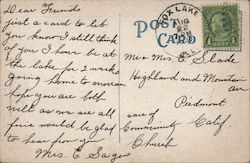 Dear Friends
just a card to let
you know I still think
of you I have be at
the lake for 2 weeks
going home to morrow
hope you are both
well as we are all
fine would be glad
to hear from you
Mrs. E. Sayer
POST
CARD
FOX LAKE
AUG
WIS.
Mr & Mrs E. Slade
Highland and Mountain
av
Piedmont
care of
Community Calif
Church